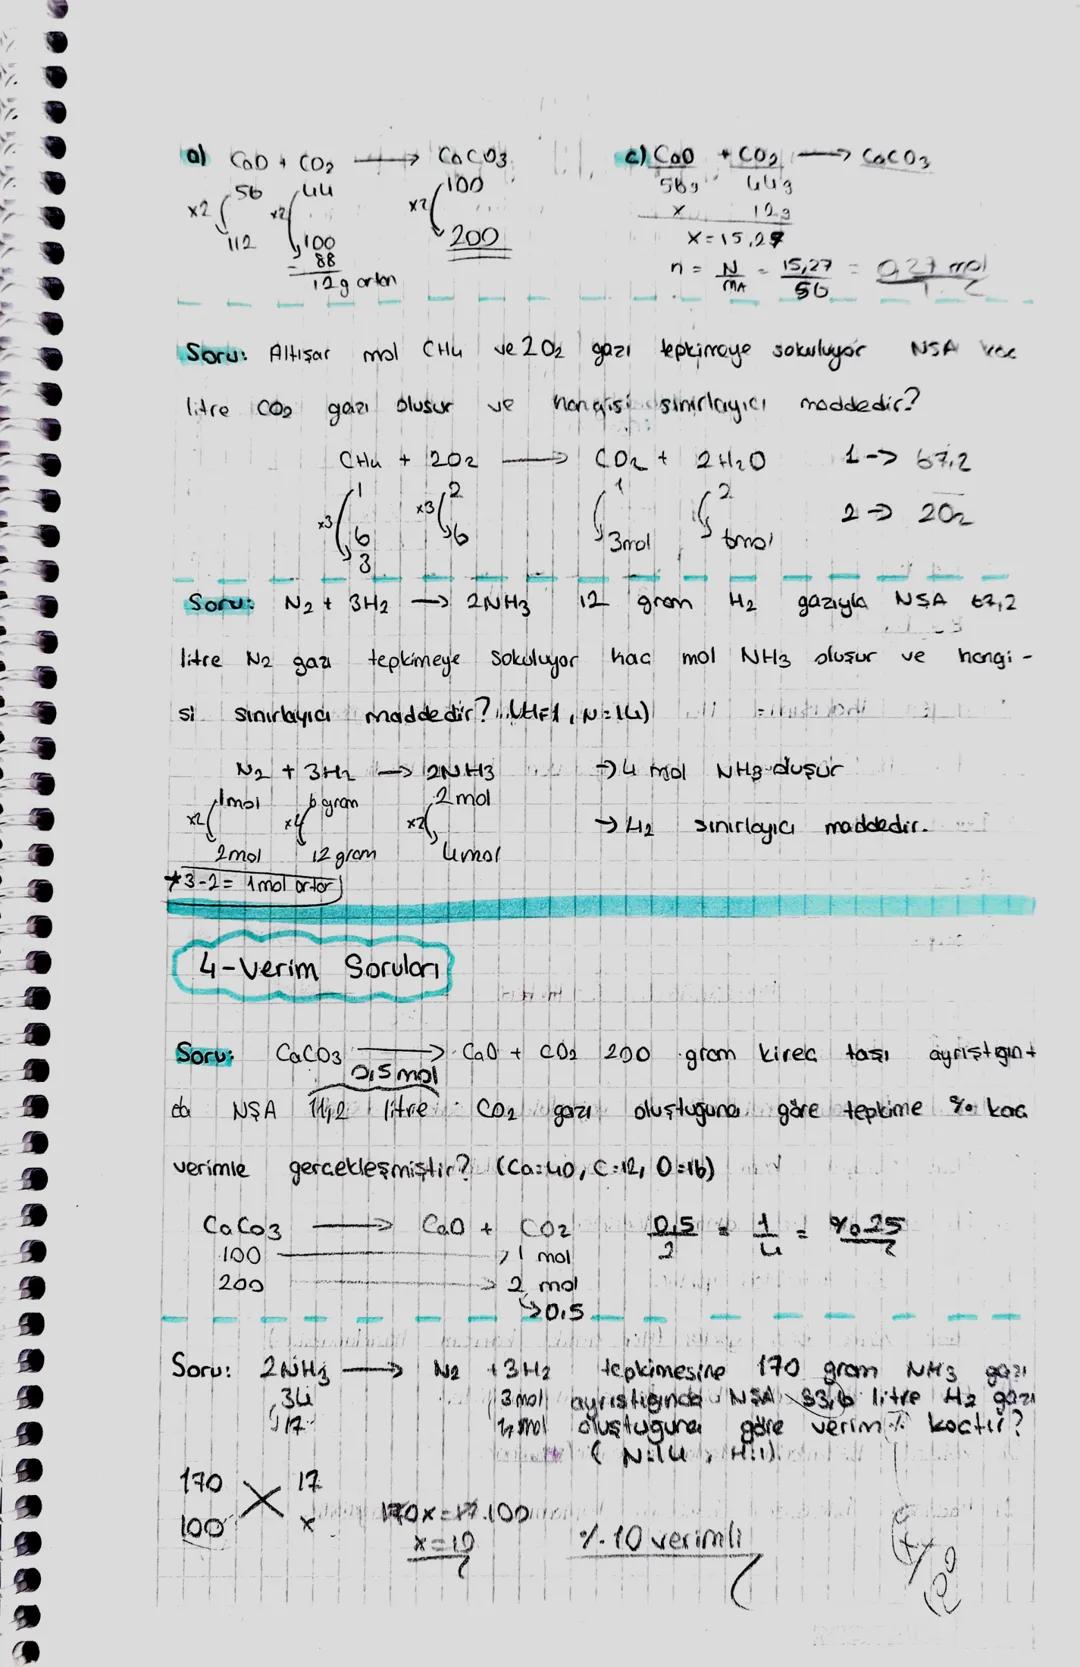 a) CaO + CO2 → CaCO3
56 44 100
x2 x2 x2
112 100 200
- 88
12g artan
c) CaO + CO2 → CaCO3
56g 44g
x 12g
x = 15,27
n = N/MA = 15,27/56 = 0,27 mol
Soru: Altışar mol CH4 ve 2O2 gazı tepkimeye sokuluyor NŞA kac
litre CO2 gazı oluşur ve hangisi sınırlayıcı maddedir?
CH4 + 2O2 → CO2 + 2H2O 1 → 67,2
1 2 1 2
x3 x3 2 → 2O2
6 6 3mol 6mol
3
Soru: N2 + 3H2 → 2NH3 12 gram H2 gazıyla NŞA 67,2
litre N2 gazı tepkimeye sokuluyor kac mol NH3 oluşur ve hangi -
si sınırlayıcı maddedir? (H=1, N=14)
N2 + 3H2 → 2NH3 → 4 mol NH3 oluşur
1mol 6 gram 2 mol
x2 x2 x2 → H2 sınırlayıcı maddedir.
2mol 12 gram 4mol
*3-2= 1mol artar
4-Verim Soruları
Soru: CaCO3 → CaO + CO2 200 gram kirec taşı ayrıştığın+
0,5 mol
da NŞA 11,2 litre CO2 gazı oluştuğuna göre tepkime % kac
verimle gercekleşmiştir? (Ca:40, C:12, O:16)
CaCo3 → CaO + CO2 0,5/2 = 1/4 = %25
100 → 1 mol
200 → 2 mol
→ 0,5
Soru: 2NH3 → N2 + 3H2 tepkimesine 170 gram NH3 gazı
34 3 mol ayrıştığında NŞA 33,6 litre H2 gazı
17 oluştuğuna göre verim % kactır?
(N:14, H:1)
170 17
100 x
170x = 17.100
x=10
%10 verimli